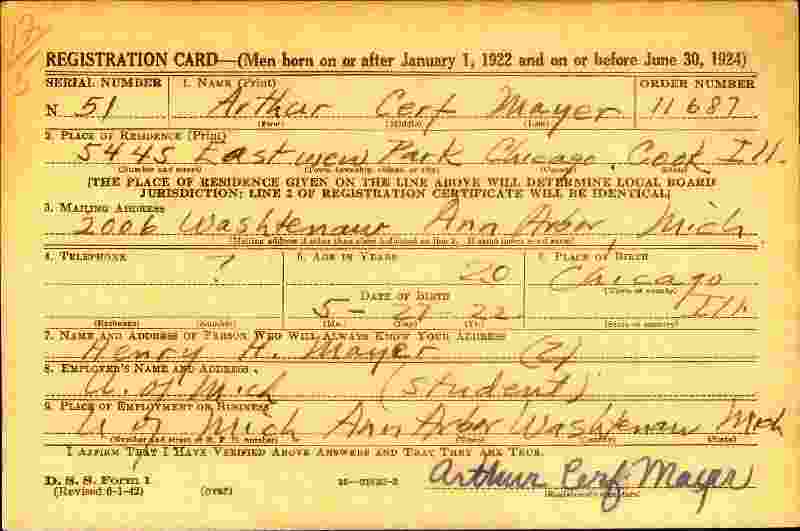 REGISTRATION CARD—(Men born on or after January 1, 1922 and on or before June 30, 1924)
SERIAL NUMBER 1. NAME (Print) ORDER NUMBER
N 51 Arthur Cerf Mayer 11687
(First) (Middle) (Last)
2. PLACE OF RESIDENCE (Print)
5445 Eastview Park Chicago, Cook Ill.
(Number and street) (Town, township, village, or city) (County) (State)
[THE PLACE OF RESIDENCE GIVEN ON THE LINE ABOVE WILL DETERMINE LOCAL BOARD
JURISDICTION; LINE 2 OF REGISTRATION CERTIFICATE WILL BE IDENTICAL]
3. MAILING ADDRESS
2006 Washtenaw Ann Arbor, Mich.
[Mailing address if other than place indicated on line 2. If same insert word same]
4. TELEPHONE 5. AGE IN YEARS 6. PLACE OF BIRTH
? 20 Chicago
DATE OF BIRTH (Town or county)
5- 27 22 Ill.
(Exchange) (Number) (Mo.) (Day) (Yr.) (State or country)
7. NAME AND ADDRESS OF PERSON WHO WILL ALWAYS KNOW YOUR ADDRESS
Henry H. Mayer (2)
8. EMPLOYER'S NAME AND ADDRESS
U. of Mich (student)
9. PLACE OF EMPLOYMENT OR BUSINESS
U of Mich Ann Arbor Washtenaw Mich
(Number and street or R. F. D. number) (Town) (County) (State)
I AFFIRM THAT I HAVE VERIFIED ABOVE ANSWERS AND THAT THEY ARE TRUE.
D. S. S. Form 1
(Revised 6-1-42) (over)
Arthur Cerf Mayer
(Registrant's signature)